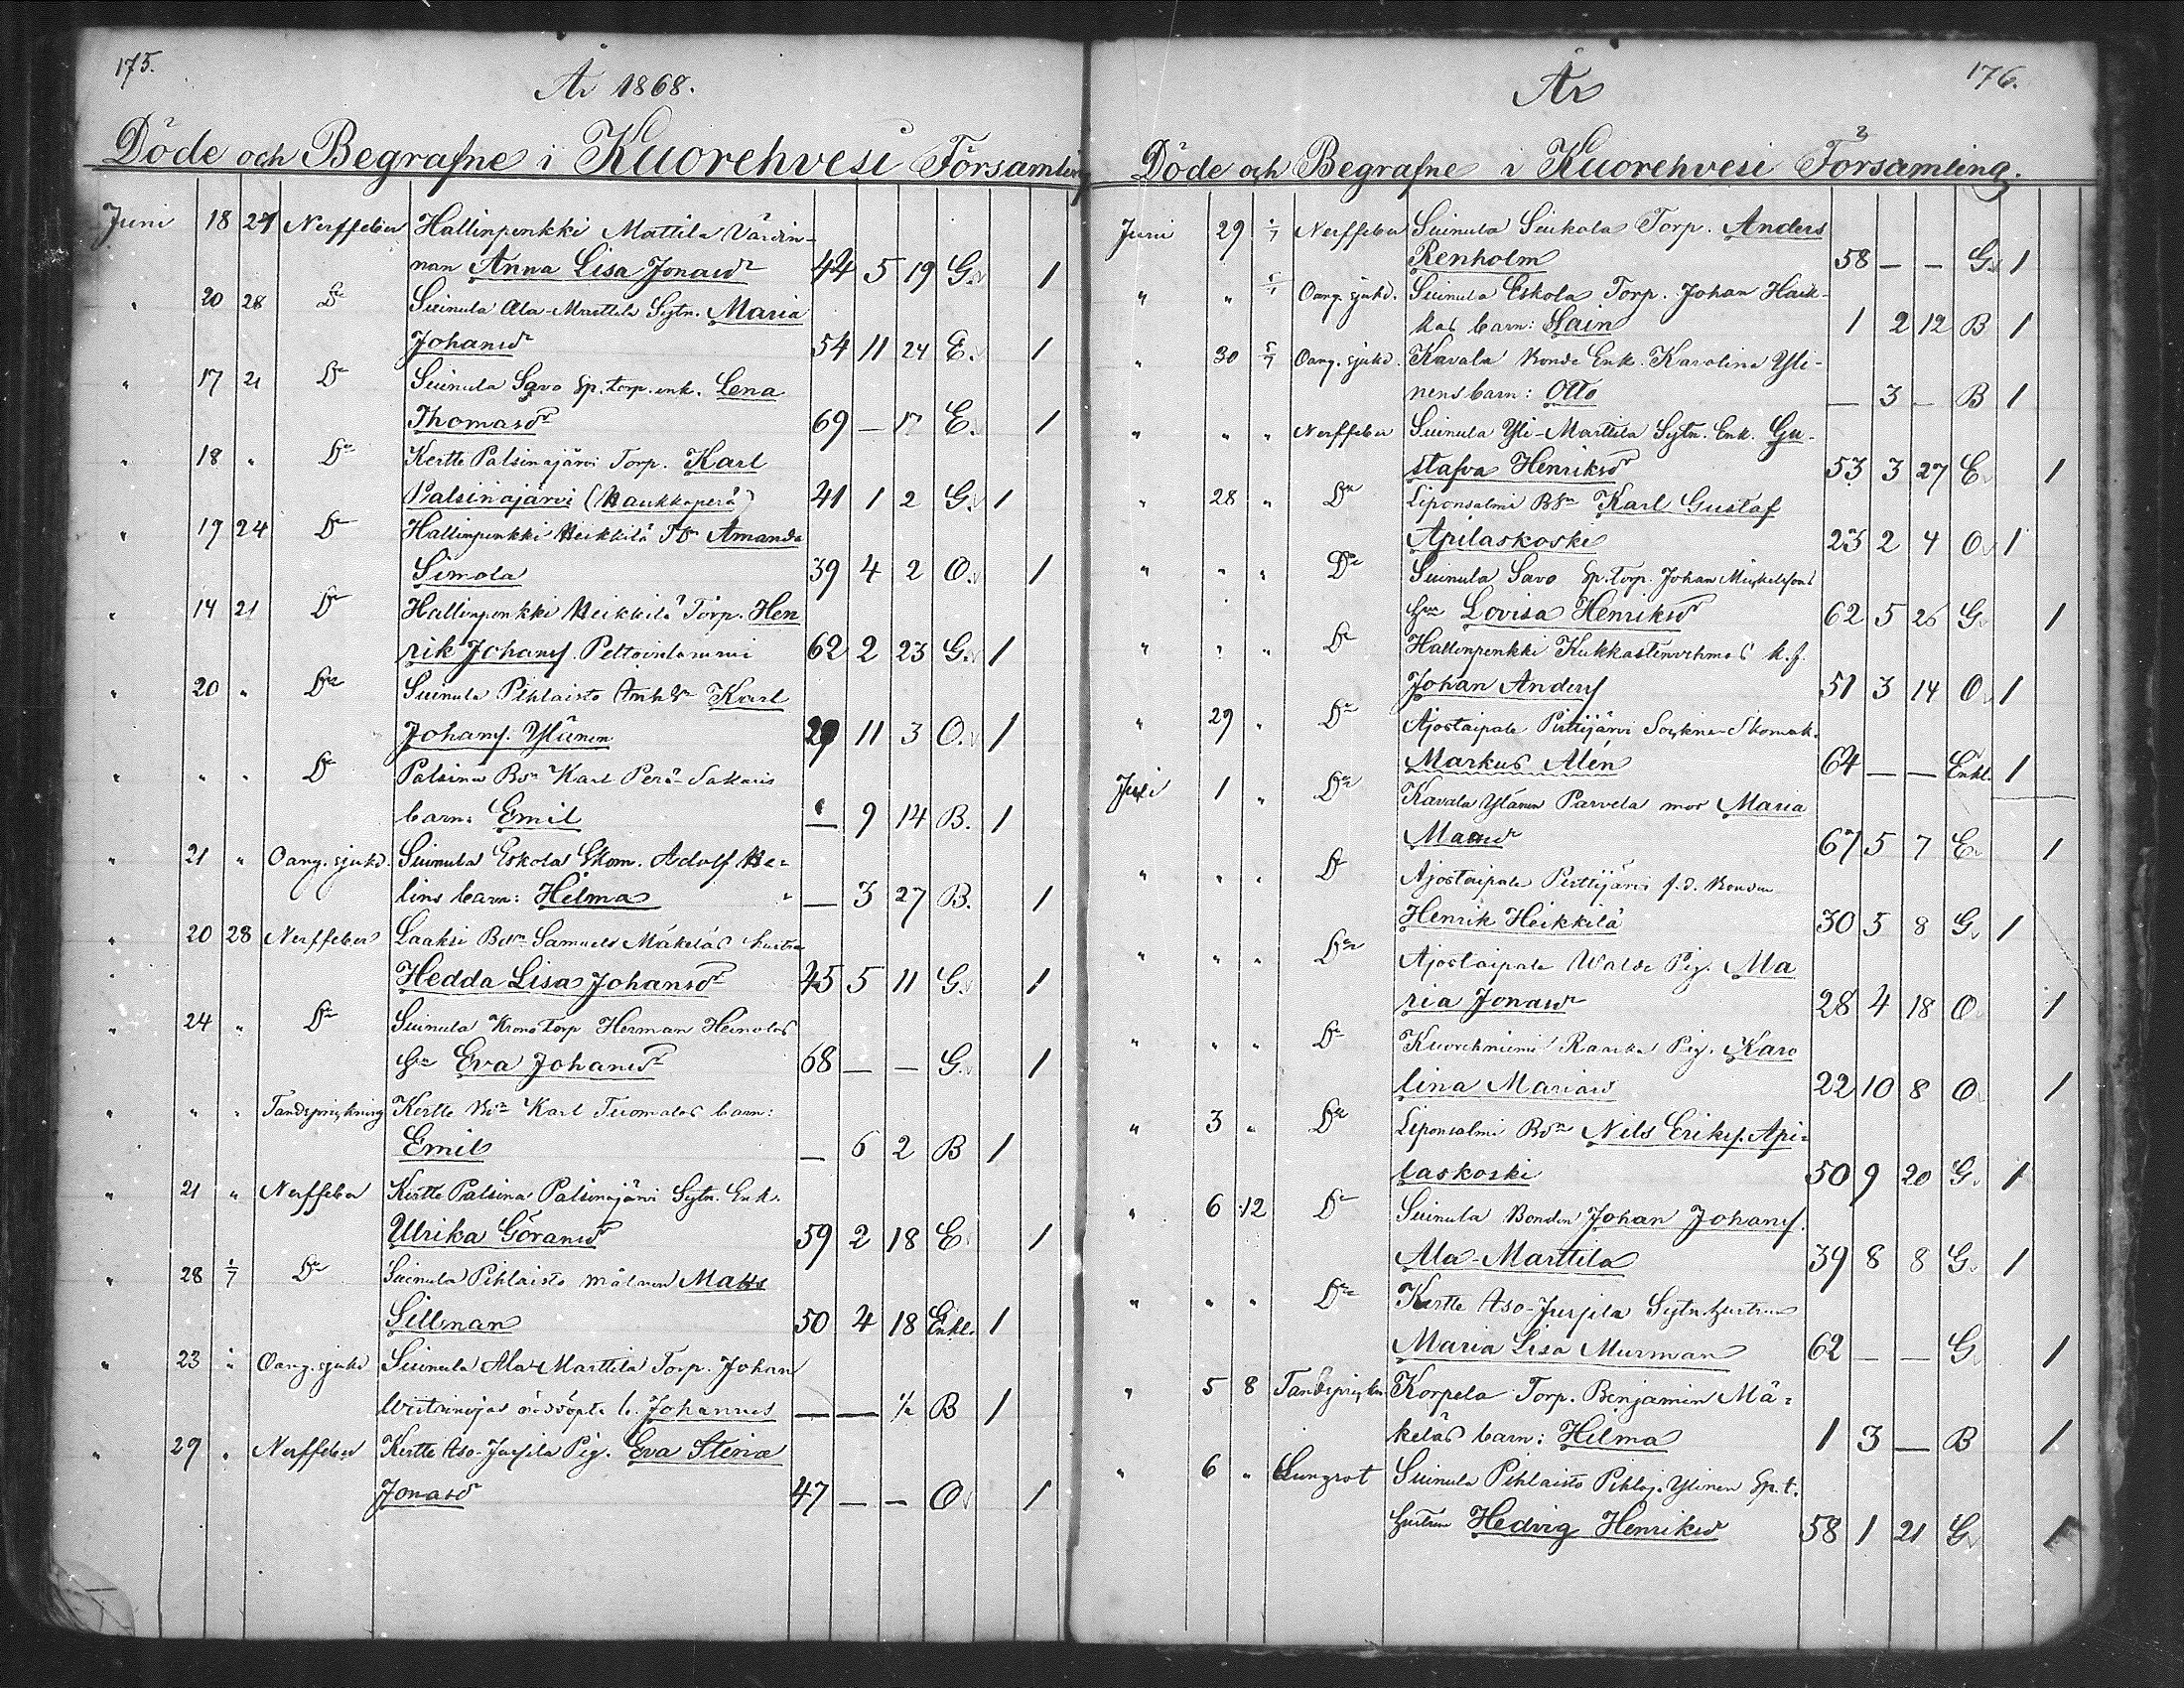 175.
År 1868.
Döde och Begrafne i Kuorehvesi Församling
Juni 18 27 Nerffeber Hallinpenkki Mattila Värdin-
nan Anna Lisa Jonasdr 44 5 19 G. 1
" 20 28 Do Suinula Ala-Marttila Sytn. Maria
Johansdr 54 11 24 E. 1
" 17 21 Do Suinula Savo Sp. torp. enk. Lena
Thomasdr 69 — 17 E. 1
" 18 " Do Kertte Palsinajärvi Torp. Karl
Palsinajärvi (Haukkaperä) 41 1 2 G. 1
" 19 24 Do Hallinpenkki Heikkilä Amanda
Simola 39 4 2 O. 1
" 14 21 Do Hallinpenkki Heikkilä Torp. Hen
rik Johanss. Peltoinlammi 62 2 23 G. 1
" 20 " Do Suinula Pihlaisto Karl
Johans. Ylänen 29 11 3 O. 1
" " " Do Palsina Bdn Karl Perä-Sakaris
barn: Emil — 9 14 B. 1
" 21 " Oang. sjukd. Suinula Eskola Skom. Adolf He-
lins barn: Hilma — 3 27 B. 1
" 20 28 Nerffeber Laaksi Bdn Samuels Mäkeläs hustru
Hedda Lisa Johansdr 45 5 11 G. 1
" 24 " Do Suinula Krono torp Herman Heinolas
Hu Eva Johansdr 68 — — G. 1
" " " Tandsprickning Kertte Bdn Karl Tuomalas barn:
Emil — 6 2 B 1
" 21 " Nerffeber Kertte Palsina Palsinajärvi Sytn. Enk.
Ulrika Göransdr 59 2 18 E 1
" 28 1/7 Do Suinula Pihlaisto målaren Matts
Sillman 50 4 18 Enkl. 1
" 23 " Oang. sjukd Suinula Ala-Marttila Torp. Johan
odöpta b. Johannes — — 1/2 B 1
" 29 " Nerffeber Kertte Aso-Juusila Pig. Eva Stina
Jonasdr 47 — — O 1
176.
År
Döde och Begrafne i Kuorehvesi Församling.
Juni 29 1/7 Nerffeber Suinula Siukola Torp. Anders
Renholm 58 — — G 1
" " 5/7 Oang. sjukd. Suinula Eskola Torp. Johan Haik-
kas barn: 1 2 12 B 1
" 30 5/7 Oang. sjukd. Kavala Bonde Enk. Karolina Yli-
nens barn: Otto — 3 — B 1
" " " Nerffeber Suinula Yli-Marttila Sytn. Enk. Gu-
stafva Henriksdr 53 3 27 E 1
" 28 " Do Liponsalmi Bdn Karl Gustaf
Apilaskoski 23 2 4 O 1
" " " Do Suinula Savo Sp. Torp. Johan Mickelsons
Hu Lovisa Henriksdr 62 5 26 G 1
" " " Do Hallinpenkki
Johan Anderss 51 3 14 O 1
" 29 " Do Ajostaipale Pirttijärvi Sockne Skomak.
Markus Alén 64 — — Enkl. 1
Juli 1 " Do Kavala Ylänen Parvela mor Maria
67 5 7 E 1
" " " Do Ajostaipale Pirttijärvi f.d. Bonden
Henrik Heikkilä 30 5 8 G 1
" " " Do Ajostaipale Walde Pig. Ma
ria Jonasdr 28 4 18 O 1
" " " Do Kuorehniemi Pig. Karo
lina Mariasd 22 10 8 O 1
" 3 " Do Liponsalmi Bdn Nils Eriks. Api-
laskoski 50 9 20 G 1
" 6 12 Do Suinula Bonden Johan Johans.
Ala-Marttila 39 8 8 G 1
" " " Do Kertte Aso-Juusila Sytn hustrun
Maria Lisa Murman 62 — — G 1
" 5 8 Tandsprickn Korpela Torp. Benjamin Mä-
keläs barn: Hilma 1 3 — B 1
" 6 " Lungsot Suinula Pihlaisto Ylinen Sp. t.
hustrun Hedvig Henriksd 58 1 21 G 1